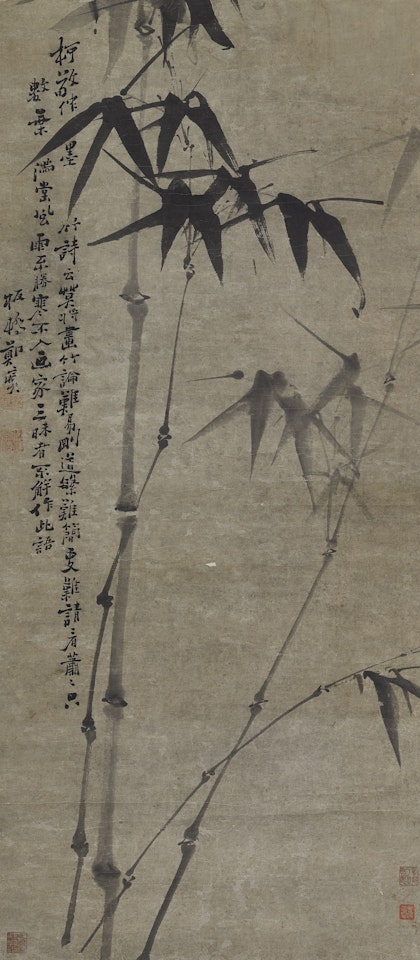 柯敬仲墨竹詩云莫將畫竹論難易剛道繁難簡更難請看蕭〻只
數葉滿堂風雨不勝寒不入画家三昧者不解作此語
板橋鄭燮